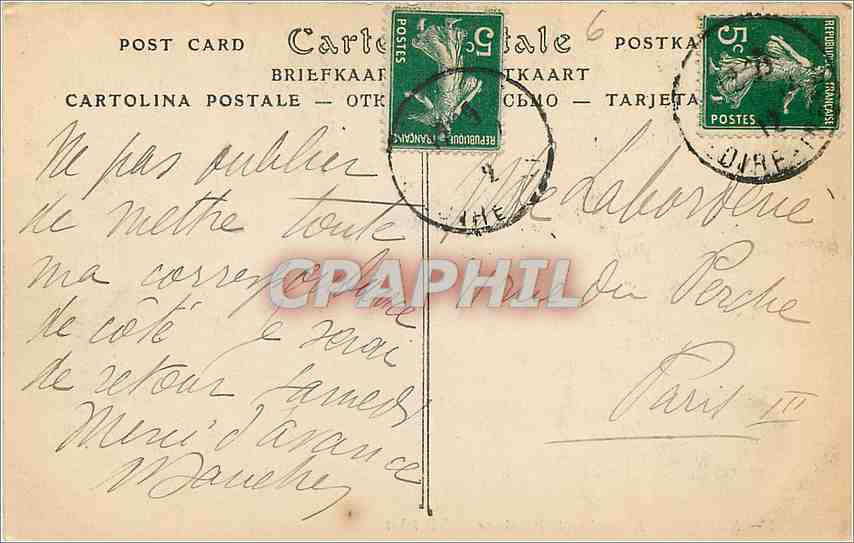 POST CARD Carte Postale POSTKA
BRIEFKAART POSTKAART
CARTOLINA POSTALE — ОТК СЬМО — TARJETA
6
5c POSTES REPUBLIQUE FRANÇAISE
5c POSTES REPUBLIQUE FRANÇAISE
OIRE
Ne pas oublier
de methe toute
ma correspondance
de côté je serai
de retour samedi
Merci d'avance
Mlle Laborderie
rue du Perche
Paris III
CPAPHIL